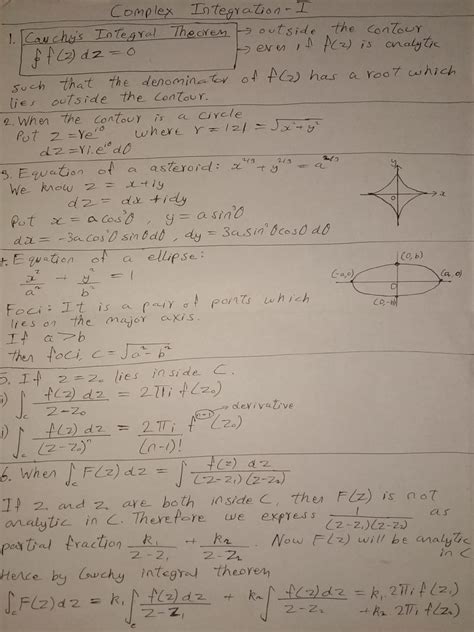 Complex Integration - I
1. Cauchy's Integral Theorem → outside the contour
∮ f(z) dz = 0 → even if f(z) is analytic
such that the denominator of f(z) has a root which
lies outside the contour.
2. When the contour is a circle
Put z = re^{iθ} where r = |z| = √(x²+y²)
dz = ri.e^{iθ}dθ
3. Equation of a asteroid: x^{2/3} + y^{2/3} = a^{2/3}
We know z = x+iy
dz = dx + idy
Put x = a cos³θ , y = a sin³θ
dx = -3a cos²θ sinθ dθ , dy = 3a sin²θ cosθ dθ
y
x
O
4. Equation of a ellipse:
x²/a² + y²/b² = 1
Foci: It is a pair of points which
lies on the major axis.
If a > b
then foci, c = √(a²-b²)
(0, b)
(-a, 0)
(a, 0)
O
(0, -b)
5. If z = z₀ lies inside C.
i) ∫_c f(z) dz / (z-z₀) = 2πi f(z₀)
i) ∫_c f(z) dz / (z-z₀)^n = 2πi / (n-1)! f^{(n-1)}(z₀) → derivative
6. When ∫_c F(z) dz = ∫ f(z) dz / (z-z₁)(z-z₂)
If z₁ and z₂ are both inside C, then F(z) is not
analytic in C. Therefore we express 1/(z-z₁)(z-z₂) as
partial fraction k₁/(z-z₁) + k₂/(z-z₂). Now F(z) will be analytic
in C
Hence by Cauchy integral theorem
∫_c F(z) dz = k₁ ∫_c f(z) dz / (z-z₁) + k₂ ∫ f(z) dz / (z-z₂) = k₁ 2πi f(z₁)
+ k₂ 2πi f(z₂)